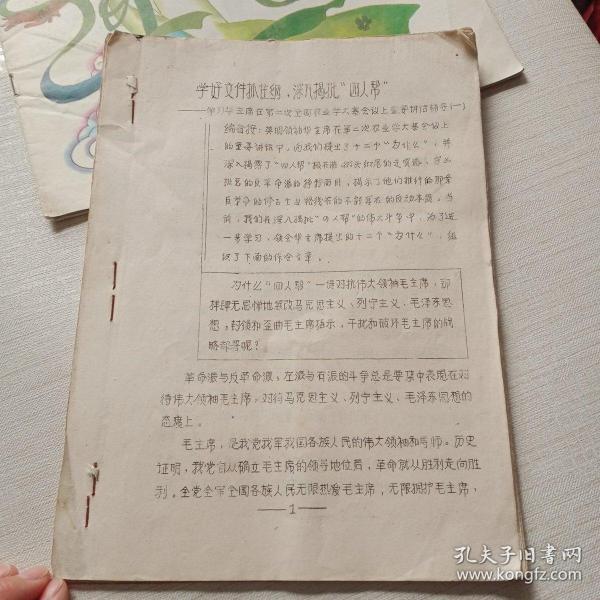 学好文件抓住纲，深入揭批“四人帮”
——学习华主席在第二次全国农业学大寨会议上重要讲话辅导(一)
编者按：英明领袖华主席在第二次农业学大寨会议上
的重要讲话中，向我们提出了十二个“为什么”，并
深入揭露了“四人帮”极右派的实质，
反革命的修正主义路线的不的反动本质。当
前，我们在深入揭批“四人帮”的伟大斗争中，为了进
一步学习，领会华主席提出的十二个“为什么”，组
织了下面的学习文章。
为什么“四人帮”一贯对抗伟大领袖毛主席，却
肆无忌惮地篡改马克思主义、列宁主义、毛泽东思
想，封锁和歪曲毛主席指示，干扰和破坏毛主席的战
略部署呢？
革命派与反革命派，左派与右派的斗争总是要集中表现在对
待伟大领袖毛主席，对待马克思主义、列宁主义、毛泽东思想的
态度上。
毛主席，是我党我军我国各族人民的伟大领袖和导师。历史
证明，我党自从确立毛主席的领导地位后，革命就从胜利走向胜
利。全党全军全国各族人民无限热爱毛主席，无限拥护毛主席，
——1——
孔夫子旧书网
www.kongfz.com